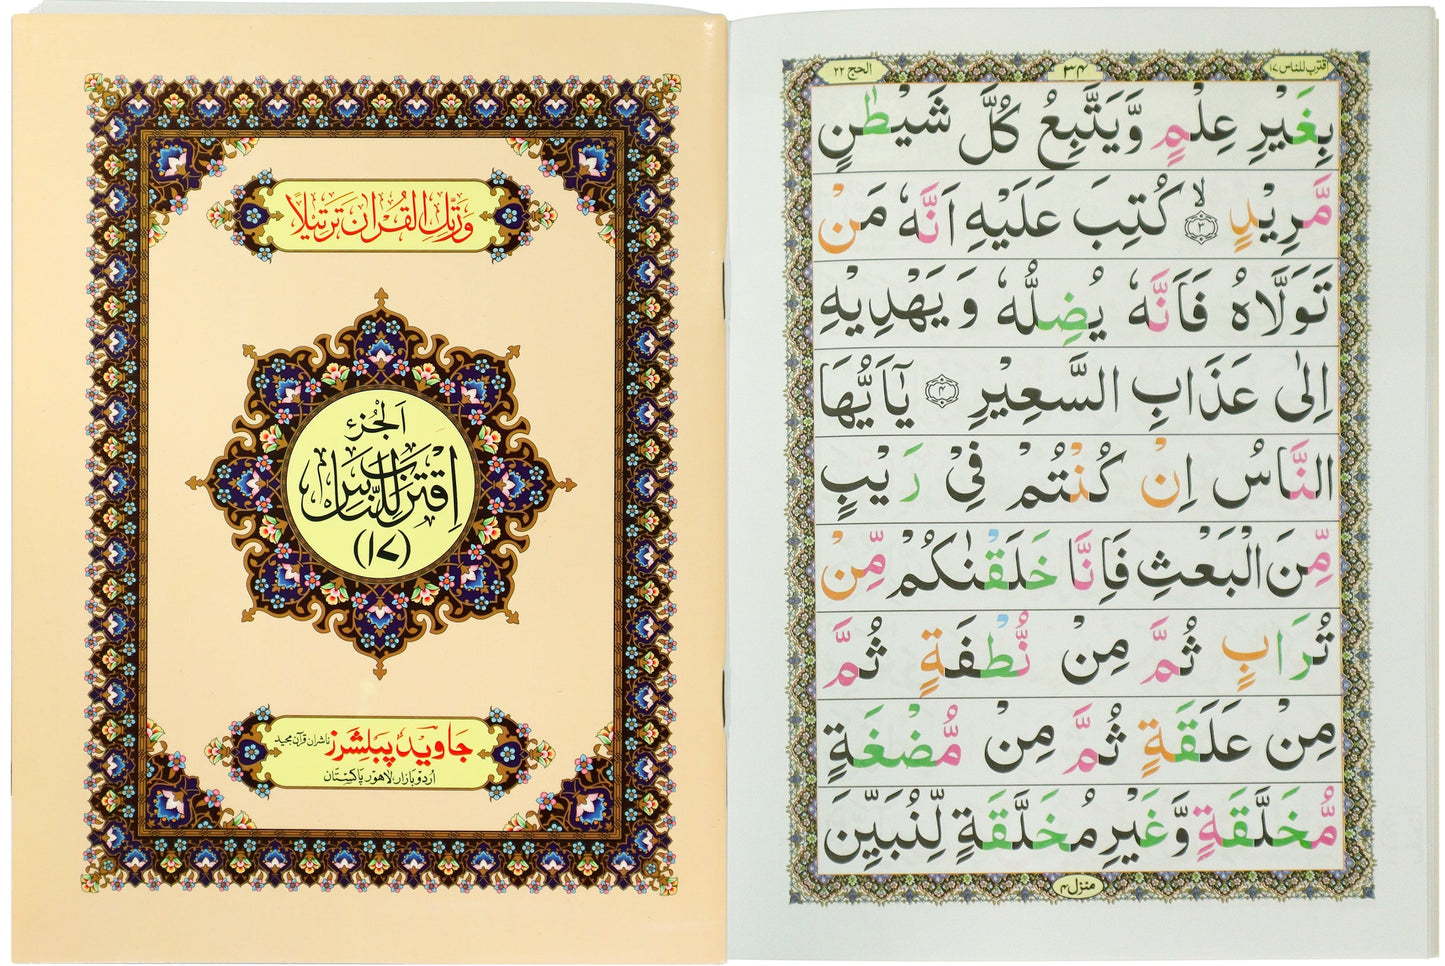 وَرَتِّلِ الْقُرْاٰنَ تَرْتِيْلًا
اَلْجُزْء
اِقْتَرَبَ لِلنَّاسِ
(١٧)
جاوید پبلشرز ناشران قرآن مجید
اُردو بازار، لاهور پاکستان
اقترب للناس ١٧
٣۴
الحج ٢٢
بِغَيْرِ عِلْمٍ وَّيَتَّبِعُ كُلَّ شَيْطٰنٍ
مَّرِيْدٍ ۙ﴿٣﴾ كُتِبَ عَلَيْهِ اَنَّهٗ مَنْ
تَوَلَّاهُ فَاَنَّهٗ يُضِلُّهٗ وَيَهْدِيْهِ
اِلٰى عَذَابِ السَّعِيْرِ ﴿۴﴾ يٰۤاَيُّهَا
النَّاسُ اِنْ كُنْتُمْ فِيْ رَيْبٍ
مِّنَ الْبَعْثِ فَاِنَّا خَلَقْنٰكُمْ مِّنْ
تُرَابٍ ثُمَّ مِنْ نُّطْفَةٍ ثُمَّ
مِنْ عَلَقَةٍ ثُمَّ مِنْ مُّضْغَةٍ
مُّخَلَّقَةٍ وَّغَيْرِ مُخَلَّقَةٍ لِّنُبَيِّنَ
منزل ۴